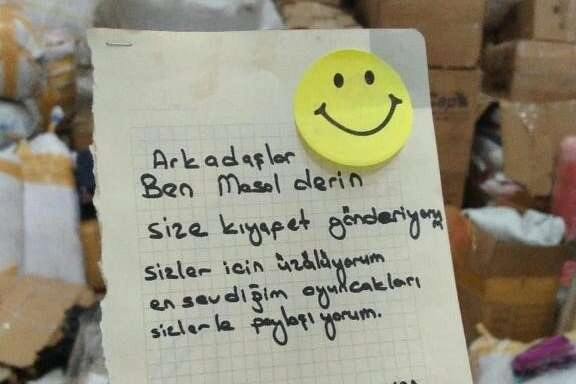 Arkadaşlar
Ben Masal derin
size kıyafet gönderiyorum
sizler için üzülüyorum
en sevdiğim oyuncakları
sizlerle paylaşıyorum.